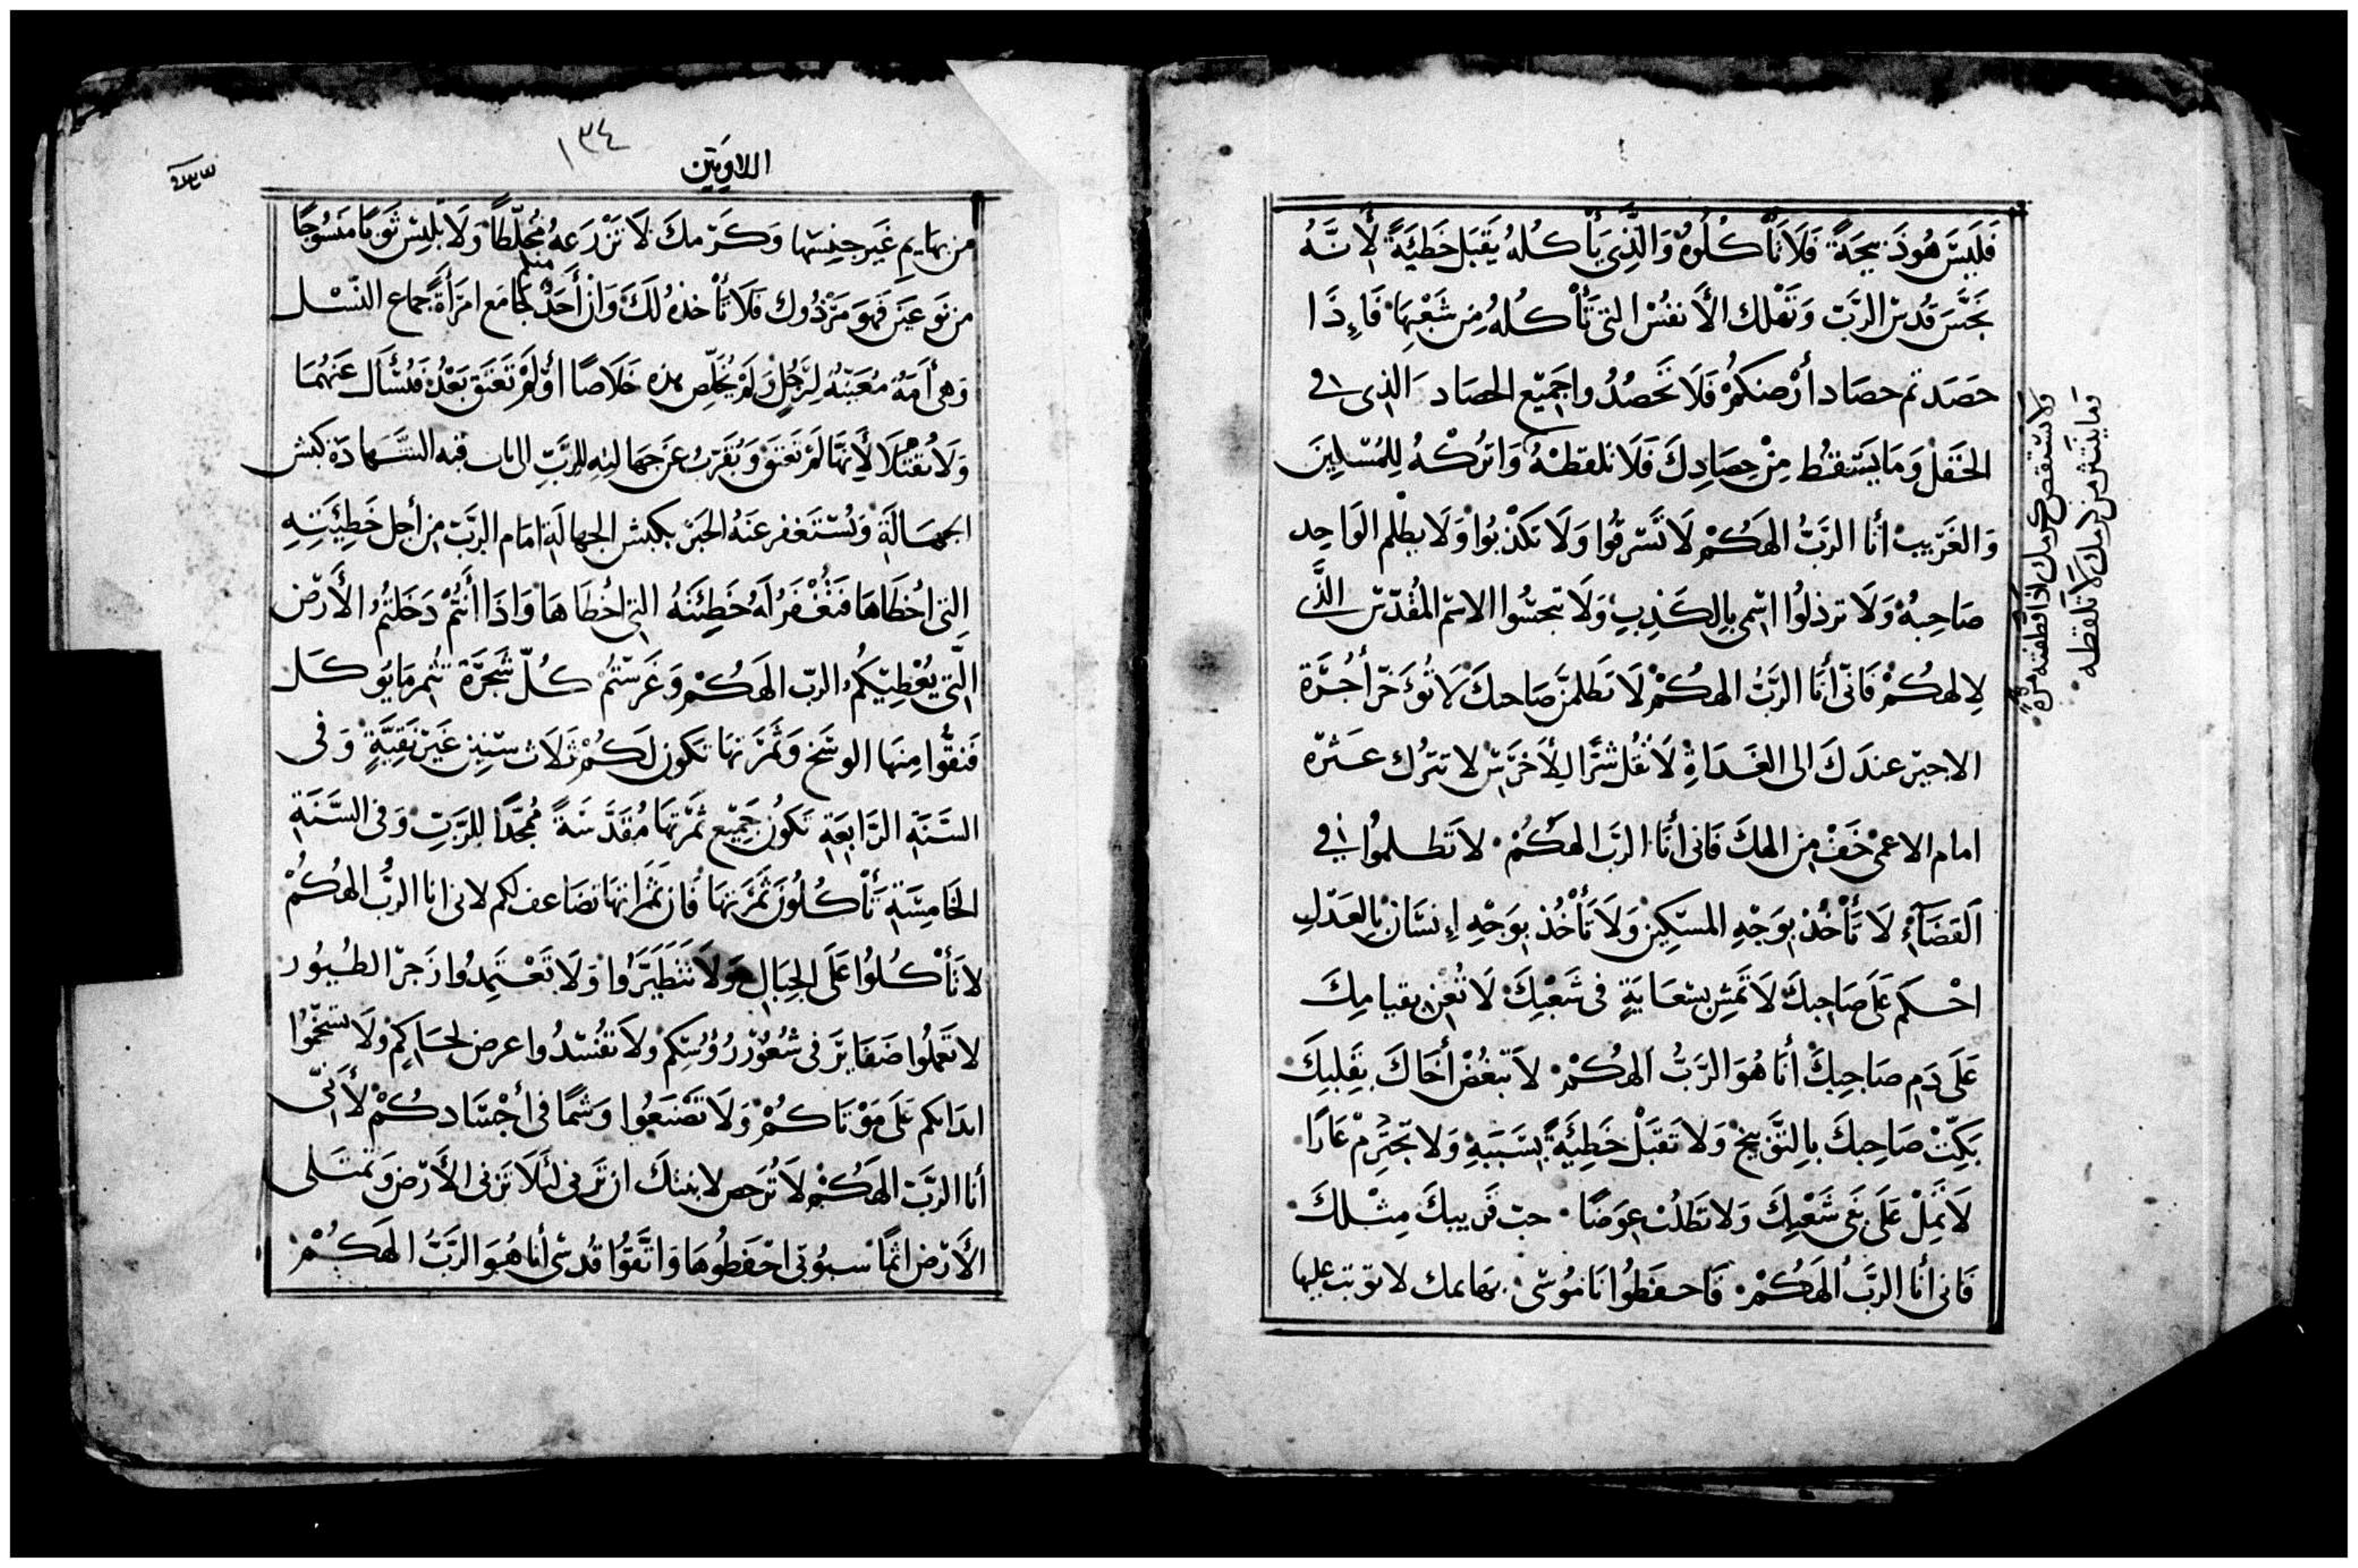 فَلَيسَ هُوذَبيحَةً فَلَا تَأْكُلُوهُ وَالَّذِي يَأْكُلهُ يَقبَل خَطيَّةً لأَنَّهُ
نَجَّسَ قُدسَ الرَّبّ وَتَهْلك الأَنفُسْ التي تَأْكُلهُ مِن شَعْبِهَا فَاءِذَا
حَصَدتم حصَاد أَرْضكمُ فَلَا تَحصُدُواجَمِيْع الحصَاد الذى فى
الحَقَلْ وَمَايَسْقُط مِنْ حِصَادِكَ فَلَا تلقطْهُ وَاتركْهُ لِلمُسْكِينَ
وَالغَرِيبْ أنَا الرَّبُّ الهَكُمْ لَا تَسْرقُوا وَلَا تكذبُوا وَلَا يظلم الوَاحِد
صَاحِبهُ وَلَا ترذلُوا اسْمى بِالكَذِبِ وَلَا تنجسُوا الاسْم المُقدَّس الذَّى
لِالهكُمْ فَانّى أَنَا الرَّبُّ الهكُمْ لَا تَظلمَنَّ صَاحبكَ لَا تُؤَخّرْ أُجْرَة
الاجيرْ عندَكَ الى الغَدَاةِ لَا تُقُل شرًّا لِلأَخرَسْ لا تترُك عَثرَه
امام الاعمىْ خَفْ مِن الهكَ فَانى أنَا الرَّبّ الهكُمْ لا تَظلموُا فى
القضَآءِ لَا تَأْخُذْ بوَجْهِ المسْكِينْ وَلَا تَأْخُذ بوَجْهِ إِنسَان بِالعَدْلِ
احْكم عَلَى صَاحِبكَ لَا تَمشِ بسْعَايَةٍ فى شَعْبكَ لَا تُعِن بقيامِكَ
عَلَى دَمِ صَاحِبكَ أنَا هُوَ الرَّبُّ الهكُمْ لَا تبغُضْ أَخَاكَ بقَلبِكَ
بَكّتْ صَاحِبكَ بِالتَّوبيخ وَلا تَقبَلْ خَطِيَّةً بسَبَبَهِ وَلا تَحْتَرِمْ عَارًا
لَا تَمِلْ عَلَى بَنى شَعْبِكَ وَلا تَطْلبْ عِوَضًا حبّ قَريبكَ مِثْلكَ
فَانى أنا الرَّبُ الهَكُمْ فَاحفَظُوا نَامُوسْى بهَايمك لا توثب عليها
ولا تستقص كرمك اذا قطفته مرةً
وما ينتثر من كرمك لا تلقطه
اللاويين
١٣٤
من بهَايمِ غَير جنِسْهَا وَكَرْمكَ لَا تَزْرَعهُ مُخلّطاً وَلَا تلبسْ ثَوبًا منسُوجًا
من نَوعَين فَهوَ مَرْذُوك فلَا تَأخذهُ لَكَ وَانْ أَحَدٌ منكم جَامَع امرَأَةً جماع النّسْل
وَهى أَمَةُ مُعَيّنَهُ لِرَجُلٍ وَلمْ يُخَلّص هذه خَلَاصًا أوْ لَمْ تَعتَق بَعْدُ فَلْيسْأَل عَنهُمَا
وَلَا يُقْتَلَا لأَنهَّا لَمْ تَعتَقْ وَيُقَرّبُ عَن جهَالتِهِ للرَّبِّ الى باب قبه الشَّهَادَة كبش
الجهَالَةِ وَيُسْتَغفر عَنهُ الحَبرْ بكبش الجهالَةِ امَام الرَّبّ مِن أجل خَطِيَّتِهِ
التى اخْطَاهَا فَتُغْفَرُ لَهُ خَطِيَّتهُ التى اخْطَاهَا وَاذَا أَنتُمْ دَخَلتُمْ الأَرْض
التَّى يُعْطِيكُمْ الربّ الهَكُمْ وَغَرَسْتُمْ كُلّ شَجَرَة تُثمر مَا يُوكَل
فَنقُّوا مِنهَا الوسَخ وَثَمَرَتهَا تكون لَكُمْ ثلَاث سْنين غَيرْ نَقِيَّةٍ وَفى
السَّنَةِ الرَّابعَةِ تَكوُن جَميْع ثَمْرَتهَا مُقَدَّسَةً مُمَجَّدًا للرَّبّ وَفى السَّنَة
الخَامِسَةِ تَأْكُلُونَ ثَمَرَتهَا فَان ثَمَراتهَا تضَاعف لكم لانى انا الرَّبُّ الهكُمْ
لا تَأْكُلُوا عَلَى الجبَالِ وَلَا تَتَطَيَّرُوا وَلَا تَعْتَمِدُوا زَجرْ الطُيوُر
لا تَعمَلُوا ضَفَايرَ فى شُعُوْر رُؤوُسِكمْ وَلَا تفُسْدُوا عرض لحَاكمِْ وَلَا تسخّمُوا
ابدَانكم عَلَى مَوْتَاكُمْ وَلَا تَصْنَعُوا وَشمًا فى أجْسَادكُمْ لأَنّى
أنا الرَّبّ الهَكُمْ لَا تُرَخص لابنتكَ ان تَزنى لئَلَا تَزنى الأَرْض وَتمتَلى
الأَرْض اثمًا سبُوتى احْفَظُوهَا وَاتَّقُوا قُدسى أنا هُوَ الرَّبُّ الهَكُمْ